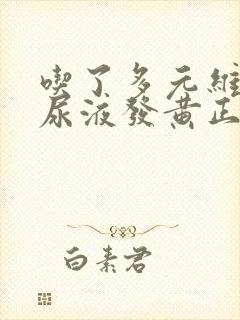 喫了多元維
尿液發黃正
白素君